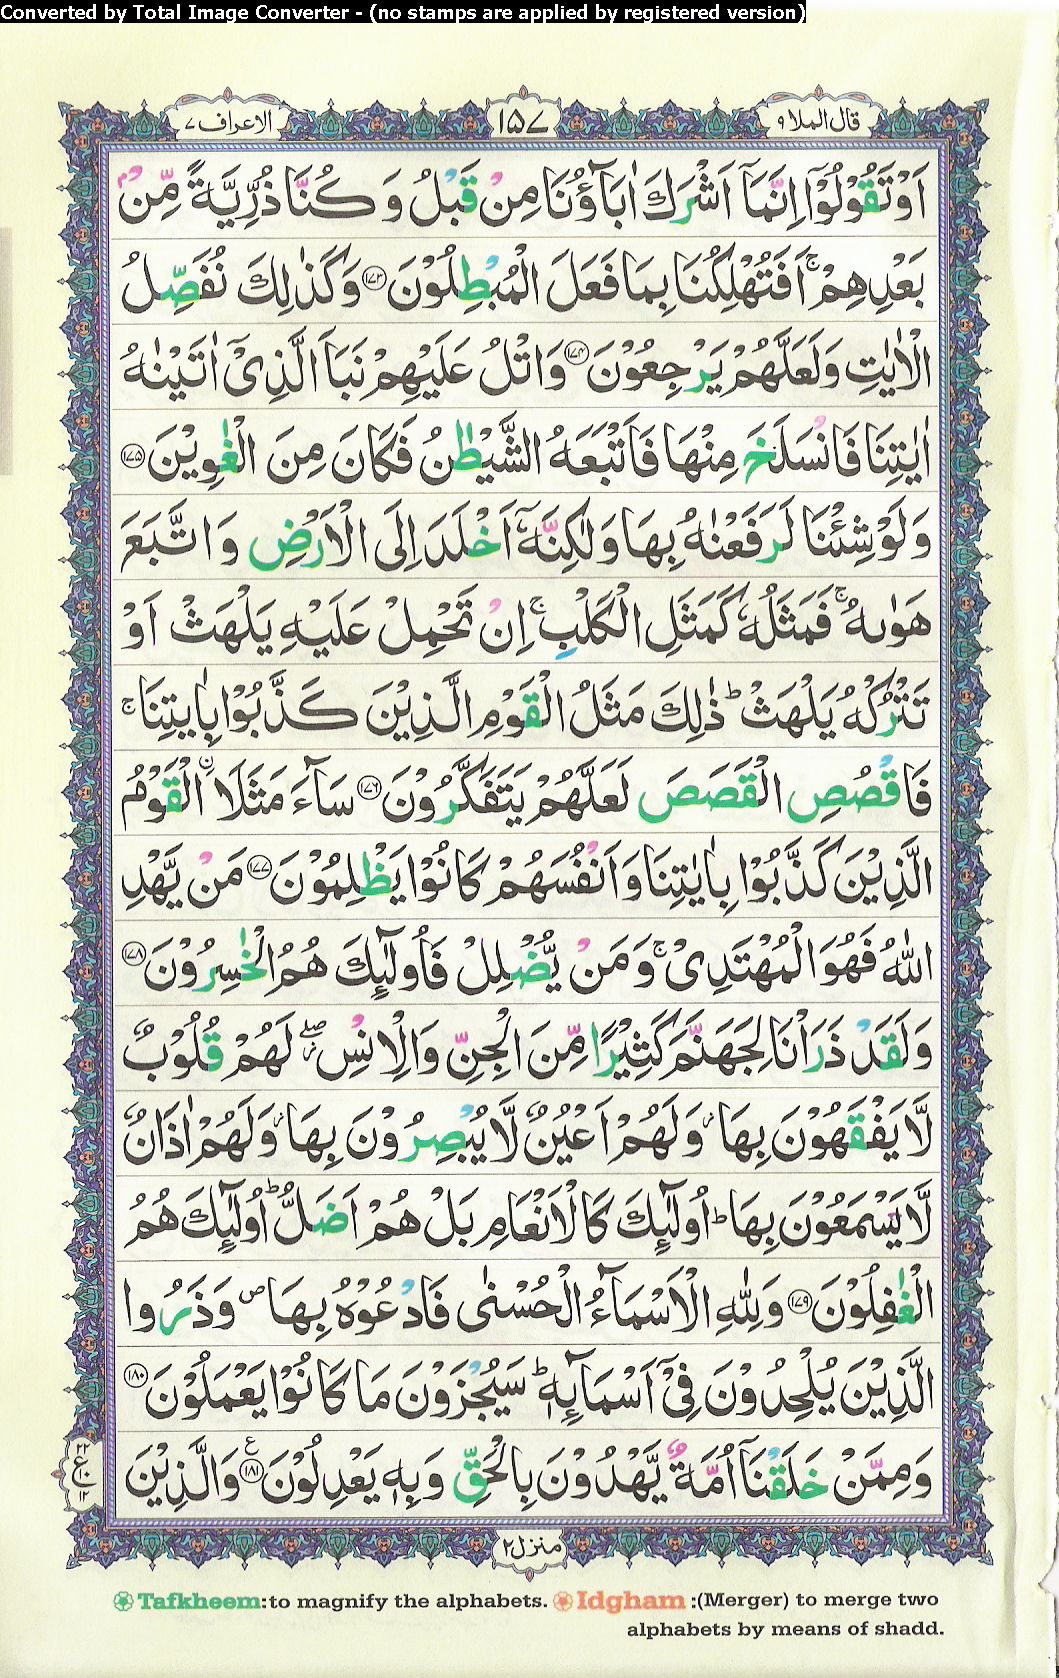 Converted by Total Image Converter - (no stamps are applied by registered version)
قال الملا ٩
١٥٧
الاعراف ٧
اَوۡتَقُوۡلُوۡۤا اِنَّمَاۤ اَشۡرَكَ اٰبَآؤُنَا مِنۡ قَبۡلُ وَ كُنَّا ذُرِّيَّةً مِّنۡۢ
بَعۡدِهِمۡ ۚ اَفَتُهۡلِكُنَا بِمَا فَعَلَ الۡمُبۡطِلُوۡنَ ﴿۱۷۳﴾ وَكَذٰلِكَ نُفَصِّلُ
الۡاٰيٰتِ وَلَعَلَّهُمۡ يَرۡجِعُوۡنَ ﴿۱۷۴﴾ وَاتۡلُ عَلَيۡهِمۡ نَبَاَ الَّذِىۡۤ اٰتَيۡنٰهُ
اٰيٰتِنَا فَانْسَلَخَ مِنۡهَا فَاَتۡبَعَهُ الشَّيۡطٰنُ فَكَانَ مِنَ الۡغٰوِيۡنَ ﴿۱۷۵﴾
وَلَوۡ شِئۡنَا لَرَفَعۡنٰهُ بِهَا وَلٰكِنَّهٗۤ اَخۡلَدَ اِلَى الۡاَرۡضِ وَاتَّبَعَ
هَوٰٮهُ ۚ فَمَثَلُهٗ كَمَثَلِ الۡكَلۡبِ ۚ اِنۡ تَحۡمِلۡ عَلَيۡهِ يَلۡهَثۡ اَوۡ
تَتۡرُكۡهُ يَلۡهَثۡ ؕ ذٰلِكَ مَثَلُ الۡقَوۡمِ الَّذِيۡنَ كَذَّبُوۡا بِاٰيٰتِنَا ۚ
فَاقۡصُصِ الۡقَصَصَ لَعَلَّهُمۡ يَتَفَكَّرُوۡنَ ﴿۱۷۶﴾ سَآءَ مَثَلَاْ ۨالۡقَوۡمُ
الَّذِيۡنَ كَذَّبُوۡا بِاٰيٰتِنَا وَاَنۡفُسَهُمۡ كَانُوۡا يَظۡلِمُوۡنَ ﴿۱۷۷﴾ مَنۡ يَّهۡدِ
اللّٰهُ فَهُوَ الۡمُهۡتَدِىۡ ۚ وَمَنۡ يُّضۡلِلۡ فَاُولٰۤٮِٕكَ هُمُ الۡخٰسِرُوۡنَ ﴿۱۷۸﴾
وَلَقَدۡ ذَرَاۡنَا لِجَهَنَّمَ كَثِيۡرًا مِّنَ الۡجِنِّ وَالۡاِنۡسِ ۖ لَهُمۡ قُلُوۡبٌ
لَّا يَفۡقَهُوۡنَ بِهَا وَلَهُمۡ اَعۡيُنٌ لَّا يُبۡصِرُوۡنَ بِهَا وَلَهُمۡ اٰذَانٌ
لَّا يَسۡمَعُوۡنَ بِهَا ؕ اُولٰۤٮِٕكَ كَالۡاَنۡعَامِ بَلۡ هُمۡ اَضَلُّ ؕ اُولٰۤٮِٕكَ هُمُ
الۡغٰفِلُوۡنَ ﴿۱۷۹﴾ وَلِلّٰهِ الۡاَسۡمَآءُ الۡحُسۡنٰى فَادۡعُوۡهُ بِهَا ص وَذَرُوا
الَّذِيۡنَ يُلۡحِدُوۡنَ فِىۡۤ اَسۡمَآٮِٕهٖ ؕ سَيُجۡزَوۡنَ مَا كَانُوۡا يَعۡمَلُوۡنَ ﴿۱۸۰﴾
وَمِمَّنۡ خَلَقۡنَاۤ اُمَّةٌ يَّهۡدُوۡنَ بِالۡحَقِّ وَبِهٖ يَعۡدِلُوۡنَ ﴿۱۸۱﴾ ع وَالَّذِيۡنَ
٢٢
ع
١٠
١٢
منزل ٢
Tafkheem:to magnify the alphabets. Idgham :(Merger) to merge two
alphabets by means of shadd.